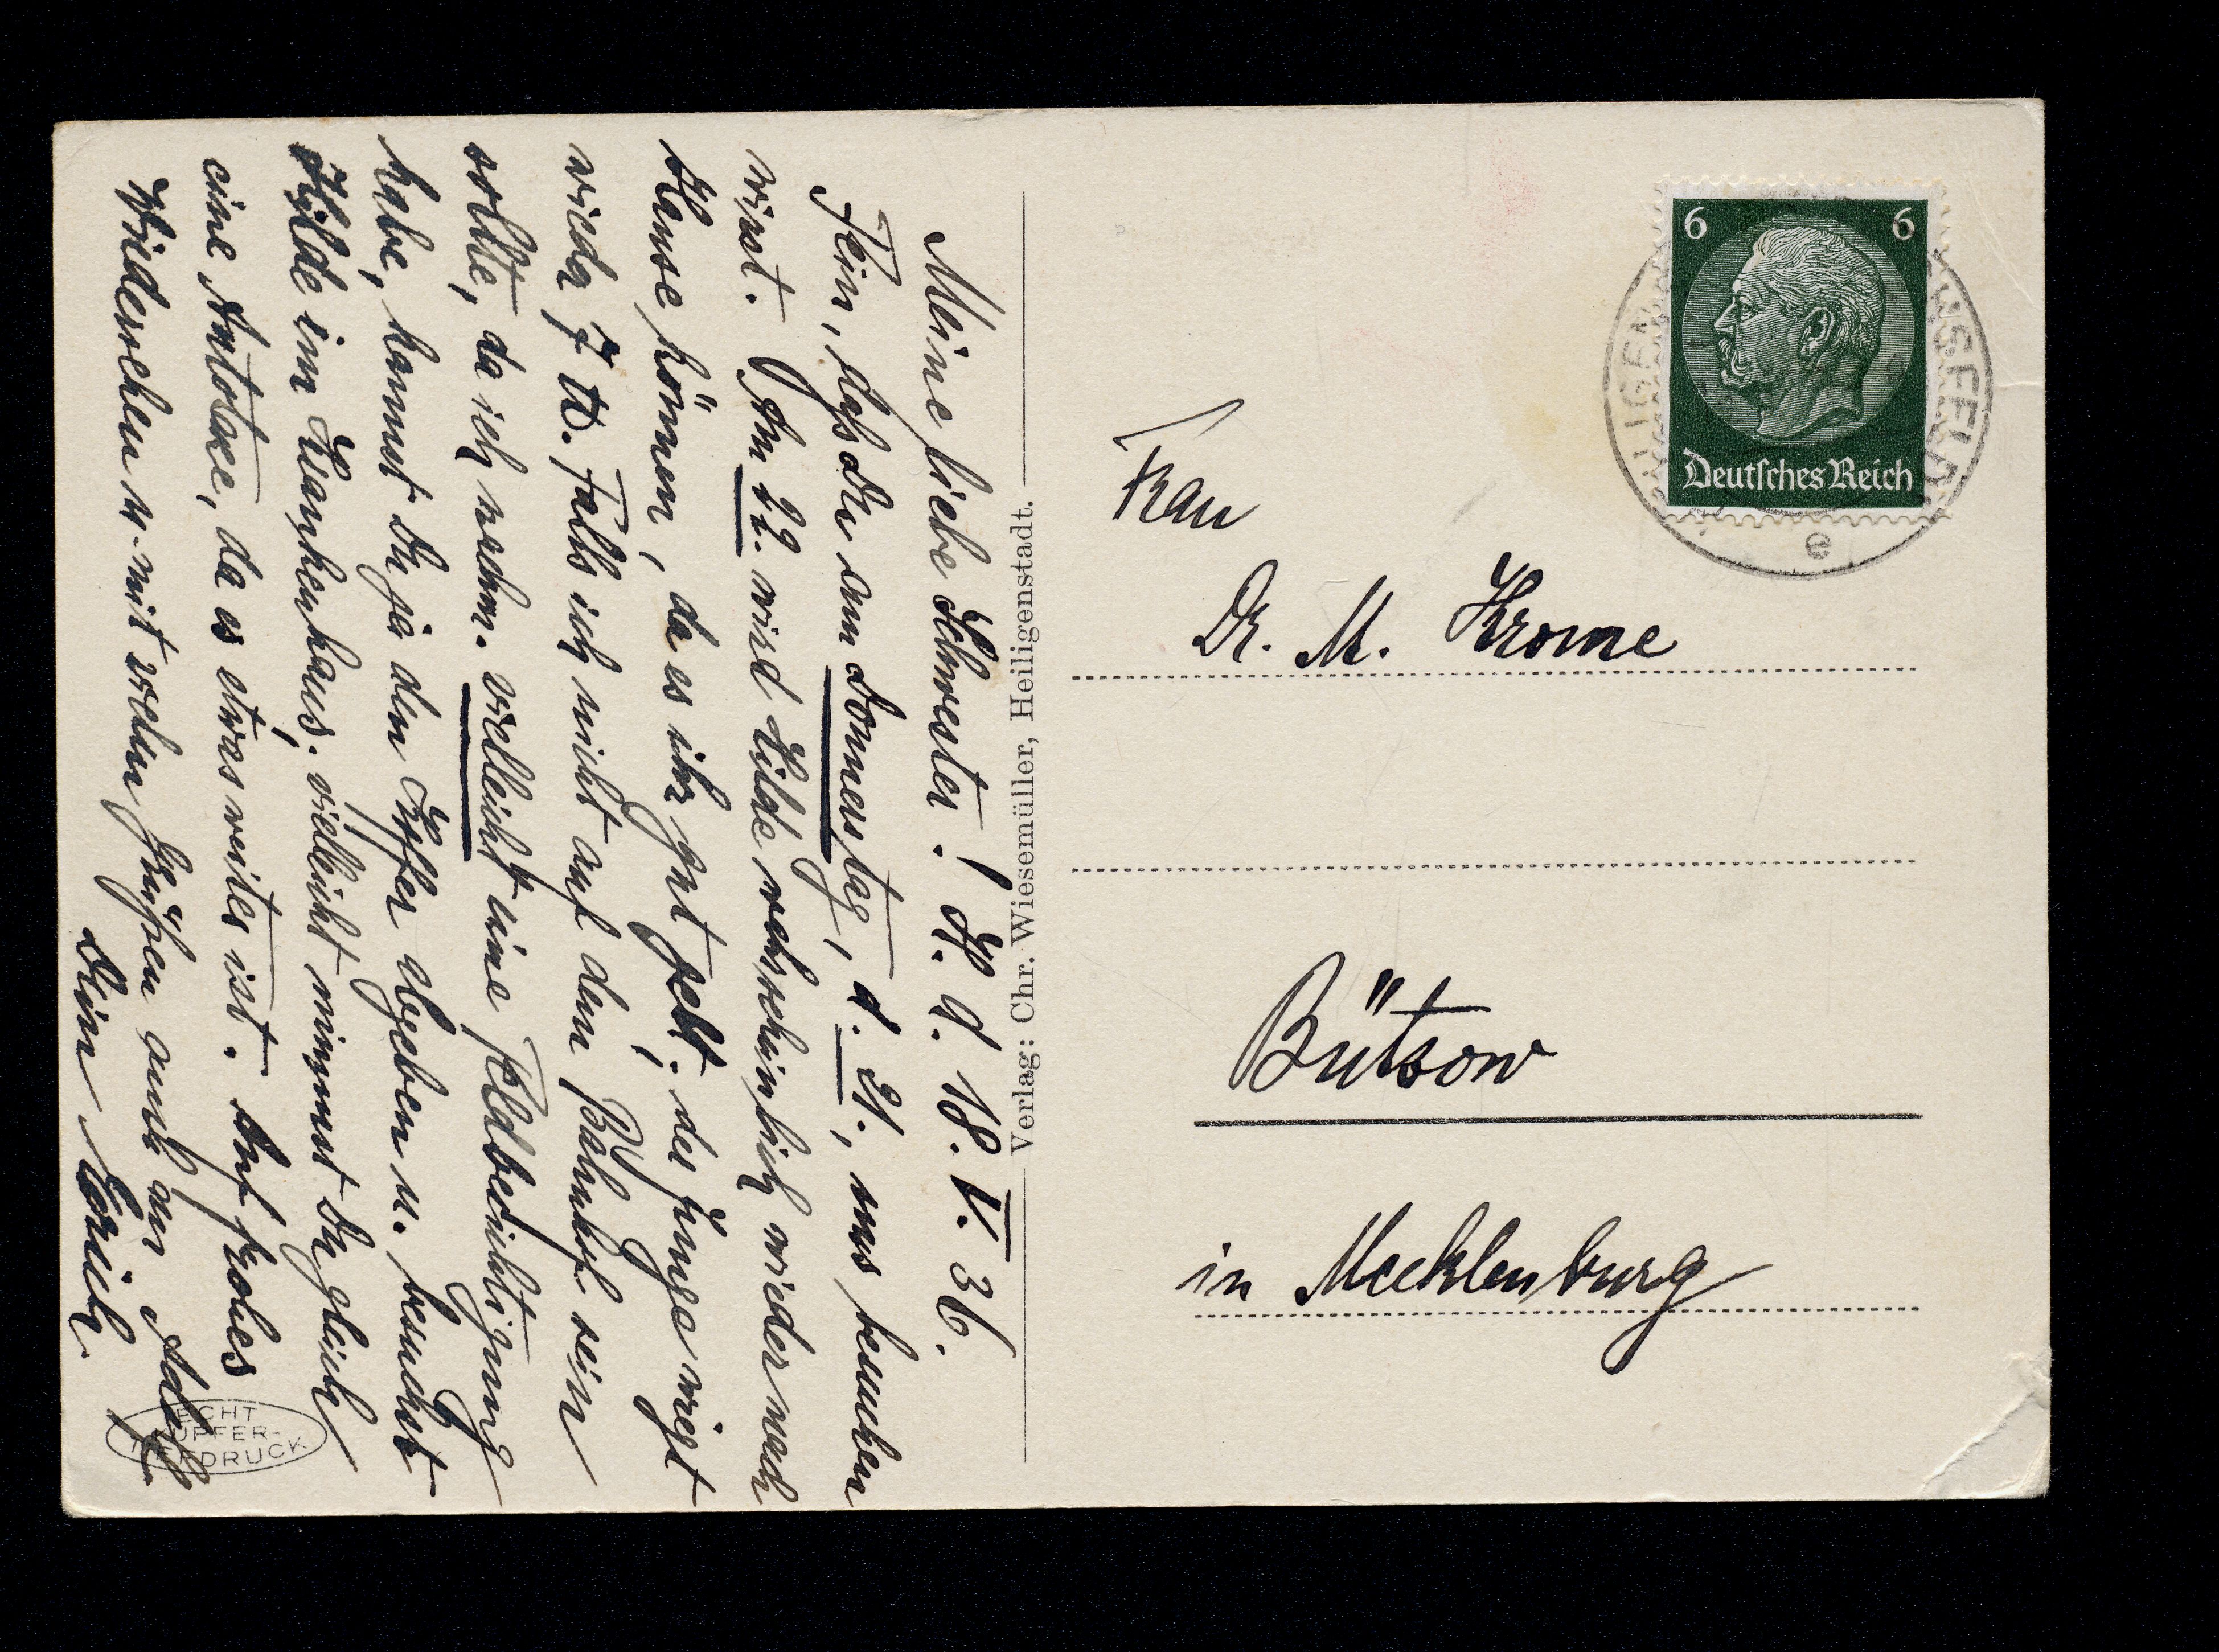 Meine liebe Schwester! H. d. 18. V. 36.
Fein, daß Du am Donnerstag, d. 21., uns besuchen
wirst. Am 22. wird Hilde wahrscheinlich wieder nach
Hause können, da es ihr gut geht; der Junge wiegt
wieder 7 ℔. Falls ich nicht auf dem Bahnhof sein
sollte, da ich nachm. vielleicht eine Feldbesichtigung
habe, kannst Du ja den Koffer abgeben u. besuchst
Hilde im Krankenhaus. vielleicht nimmst Du gleich
eine Autotaxe, da es etwas weiter ist. Auf frohes
Wiedersehen u. mit vielen Grüßen auch an Adolf
Dein Erich.
ECHT
KUPFER-
TIEFDRUCK
Verlag: Chr. Wiesemüller, Heiligenstadt.
6 6
Deutsches Reich
e
Frau
Dr. M. Krome
Bützow
in Mecklenburg